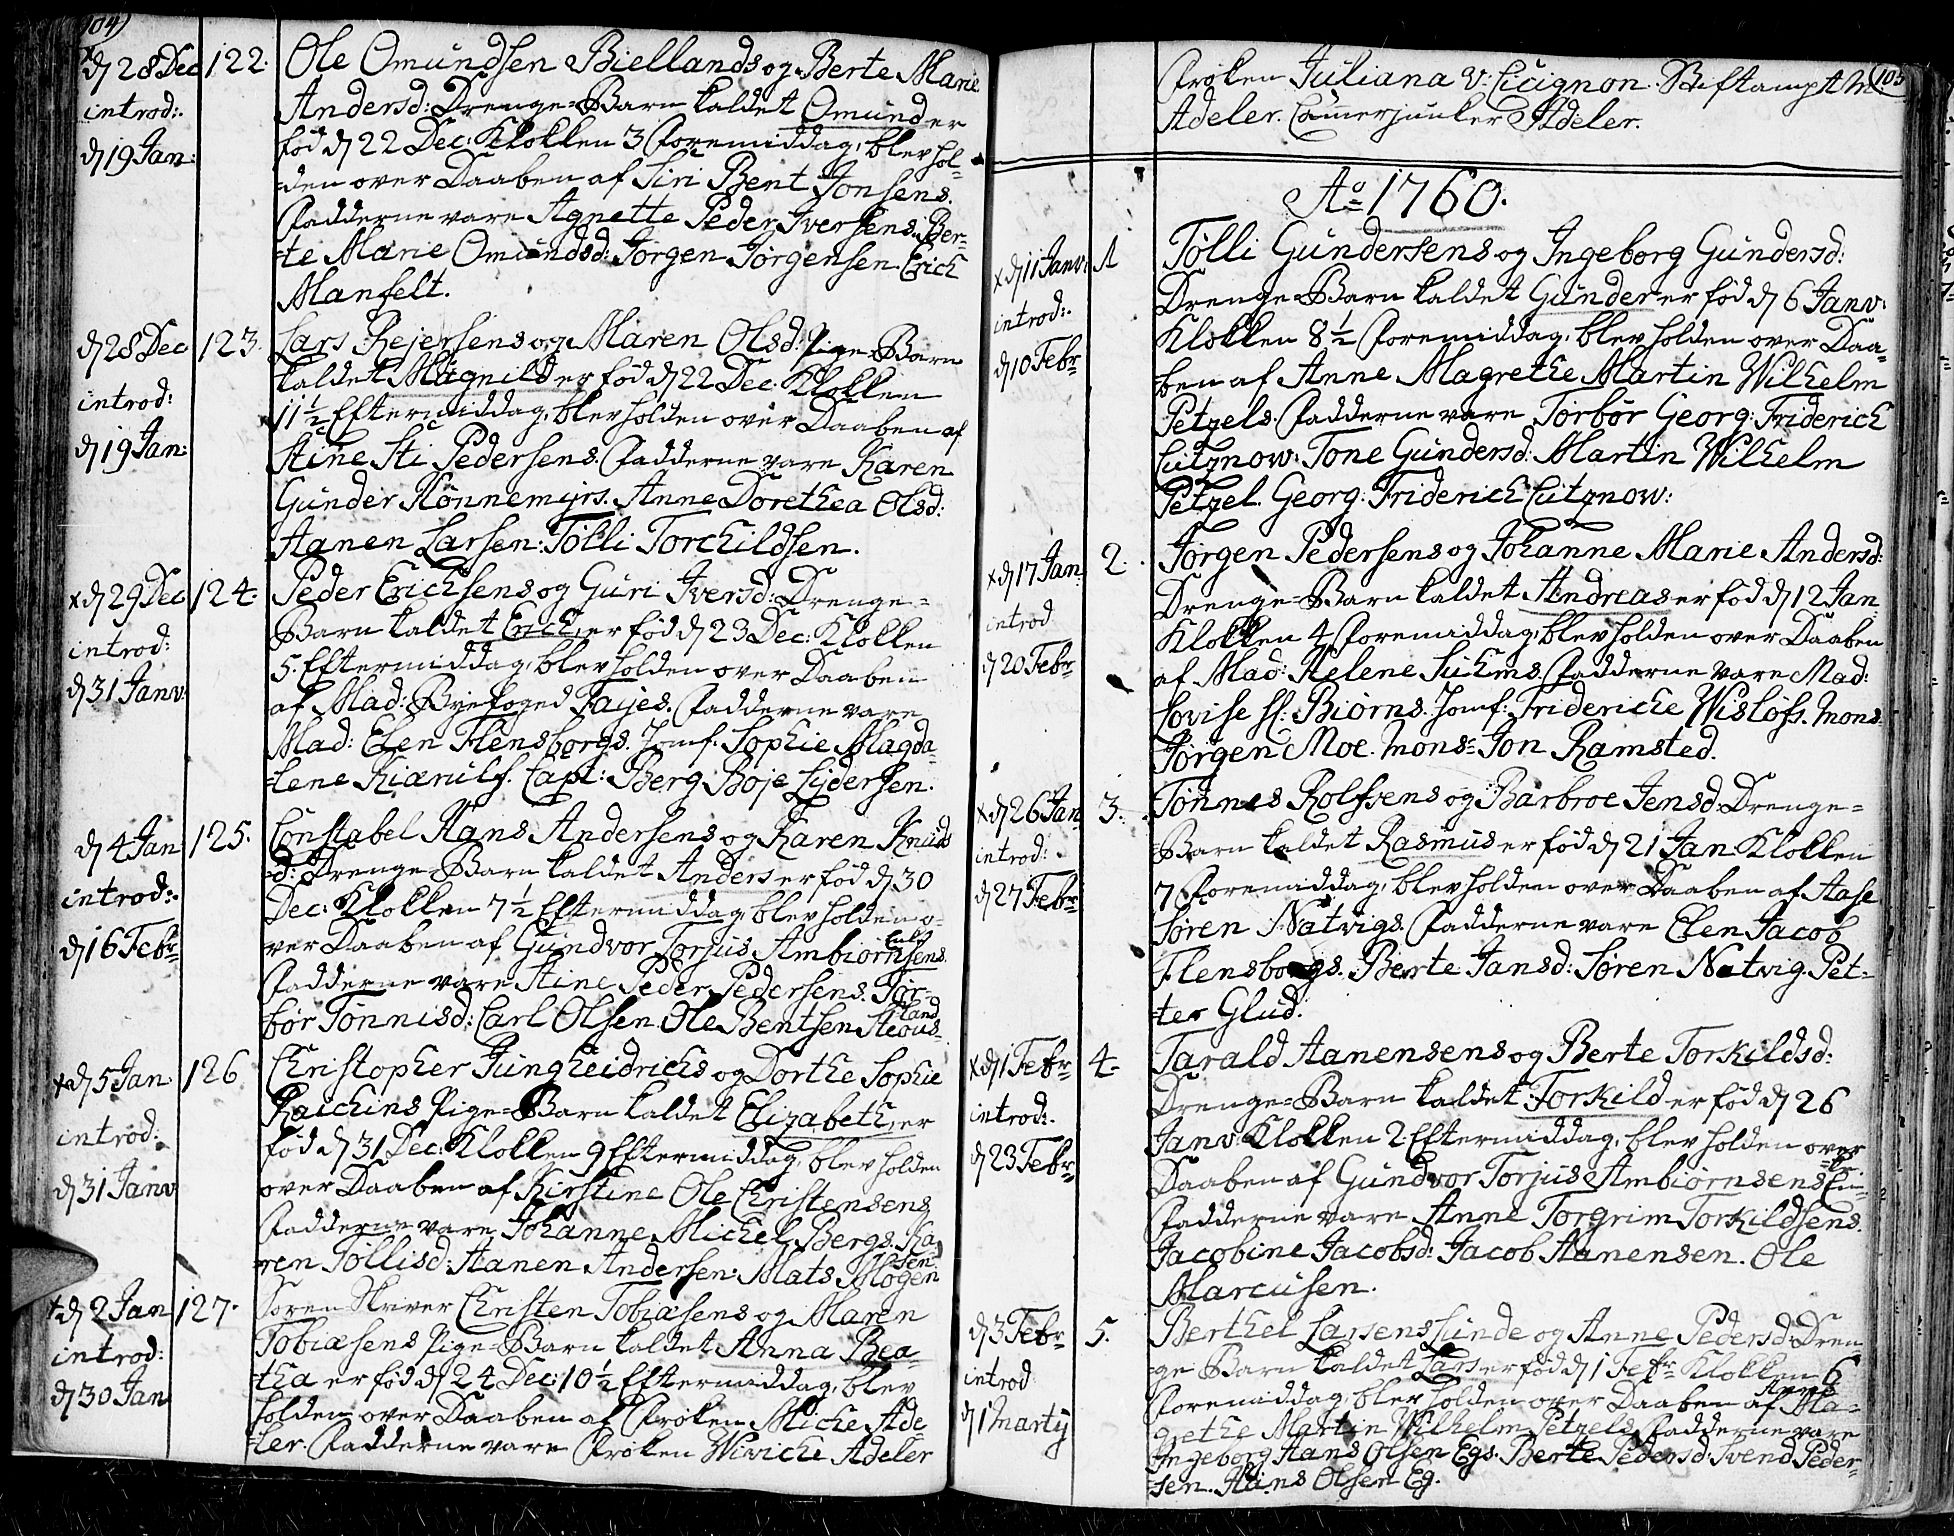 104)
d 28 Dec 122. Ole Omundsen Biellands og Berte Marie
introd: Andersd: Drenge-Barn kaldet Omund er
d 19 Jan: fød d 22 Dec: Klokken 3 Foremiddag, blev hol-
den over Daaben af Siri Bent Jonsens.
Fadderne vare Agnette Peder Iversens. Ber-
te Marie Omundsd: Jørgen Jørgensen. Erich
Manfelt.
d 28 Dec 123. Lars Rejersens og Maren Olsd: Pige-Barn
kaldet Magnild er fød d 22 Dec: Klokken
introd: 11½ Eftermiddag, blev holden over Daaben af
d 19 Jan: Stine Sti Pedersens. Fadderne vare Karen
Gunder Rønnemyrs. Anne Dorethea Olsd:
Aanen Larsen: Tølli Torchildsen.
x d 29 Dec 124. Peder Erichsens og Guri Iversd: Drenge-
Barn kaldet Erich, er fød d 23 Dec: Klokken
introd: 5. Eftermiddag, blev holden over Daaben
d 31 Janv: af Mad: Byefoged Fayes. Fadderne vare
Mad: Elen Flensborgs. Jomf: Sophie Magda-
lene Kiærulf. Capt: Berg. Boje Lydersen.
d 4 Jan 125. Constabel Hans Andersens og Karen Knuds
d: Drenge-Barn kaldet Anders er fød d 30
introd: Dec: Klokken 7½ Eftermiddag blev holden o-
d 16 Febr ver Daaben af Gundvor Torjus Ambiornsens
Fadderne vare Stine Peder Pedersens. Tor-
bør Tønnisd: Carl Olsen. Ole Bentsen
x d 5 Jan 126 Christopher Jungheidrichs og Dorthe Sophie
Raichins Pige-Barn kaldet Elizabeth, er
introd: fød d 31 Dec: Klokken 9 Eftermiddag, blev holden
d 31 Janv over Daaben af Kirstine Ole Christensens
Fadderne vare Johanne Michel Bergs. Ka
ren Tollisd: Aanen Andersen: Mats Mogen
sen
x d 2 Jan 127. Søren Skriver Christen Tobiæsens og Maren
introd: Tobiæsens Pige-Barn kaldet Anna Bea-
d 30 Jan tha er fød d 24 Dec: 10½ Eftermiddag, blev
holden over Daaben af Frøken Miche Ade
ler. Fadderne vare Frøken Wiviche Adeler
105
Frøken Juliana v: Cicignon. Stiftampt M
Adeler. Camerjunker Adeler.
Ao 1760.
x d 11 Janv: 1 Tølli Gundersens og Ingeborg Gundersd:
introd: Drenge-Barn kaldet Gunder er fød d 6 Janv:
d 10 Febr Klokken 8½ Foremiddag, blev holden over Daa-
ben af Anne Magrethe Martin Wilhelm
Petzels. Fadderne vare Torbør Georg: Friderich
Lütznow: Tone Gundersd: Martin Wilhelm
Petzel. Georg: Friderich Lütznow:
x d 17 Jan 2. Jørgen Pedersens og Johanne Marie Andersd:
introd Drenge-Barn kaldet Andreas er fød d 12 Jan
d 20 Febr Klokken 4 Foremiddag, blev holden over Daaben
af Mad: Helene Suhms. Fadderne vare Mad:
Lovise Biørns. Jomf: Frideriche Wisløfs. Mons
Jørgen Moe. Mons: Jon Ramsted.
x d 26 Jan 3. Tønnes Rolfsens og Barbroe Jensd: Drenge-
introd: Barn kaldet Rasmus er fød d 21 Jan Klokken
d 27 Febr 7 Foremiddag, blev holden over Daaben af Aase
Søren Natvigs. Fadderne vare Elen Jacob
Flensborgs. Berte Jansd: Søren Natvig. Pet-
ter Glud.
x d 1 Febr 4. Tarald Aanensens og Berte Torkildsd:
introd: Drenge-Barn kaldet Torkild er fød d 26
d 23 Febr Janv: Klokken 2 Eftermiddag, blev holden over
Daaben af Gundvor Torjus Ambiornsens
Fadderne vare Anne Torgrim Torkildsens.
Jacobine Jacobsd: Jacob Aanensen. Ole
Marcusen.
d 3 Febr 5. Berthel Larsens Lunde og Anne Pedersd: Dren-
introd ge Barn kaldet Lars er fød d 1 Febr Klokken 6
d 1 Martÿ Foremiddag, blev holden over Daaben af Anne Ma-
grethe Martin Wilhelm Petzels. Fadderne vare
Ingeborg Hans Olsen Egs. Berte Pedersd: Svend Peder-
sen. Hans Olsen Eg.